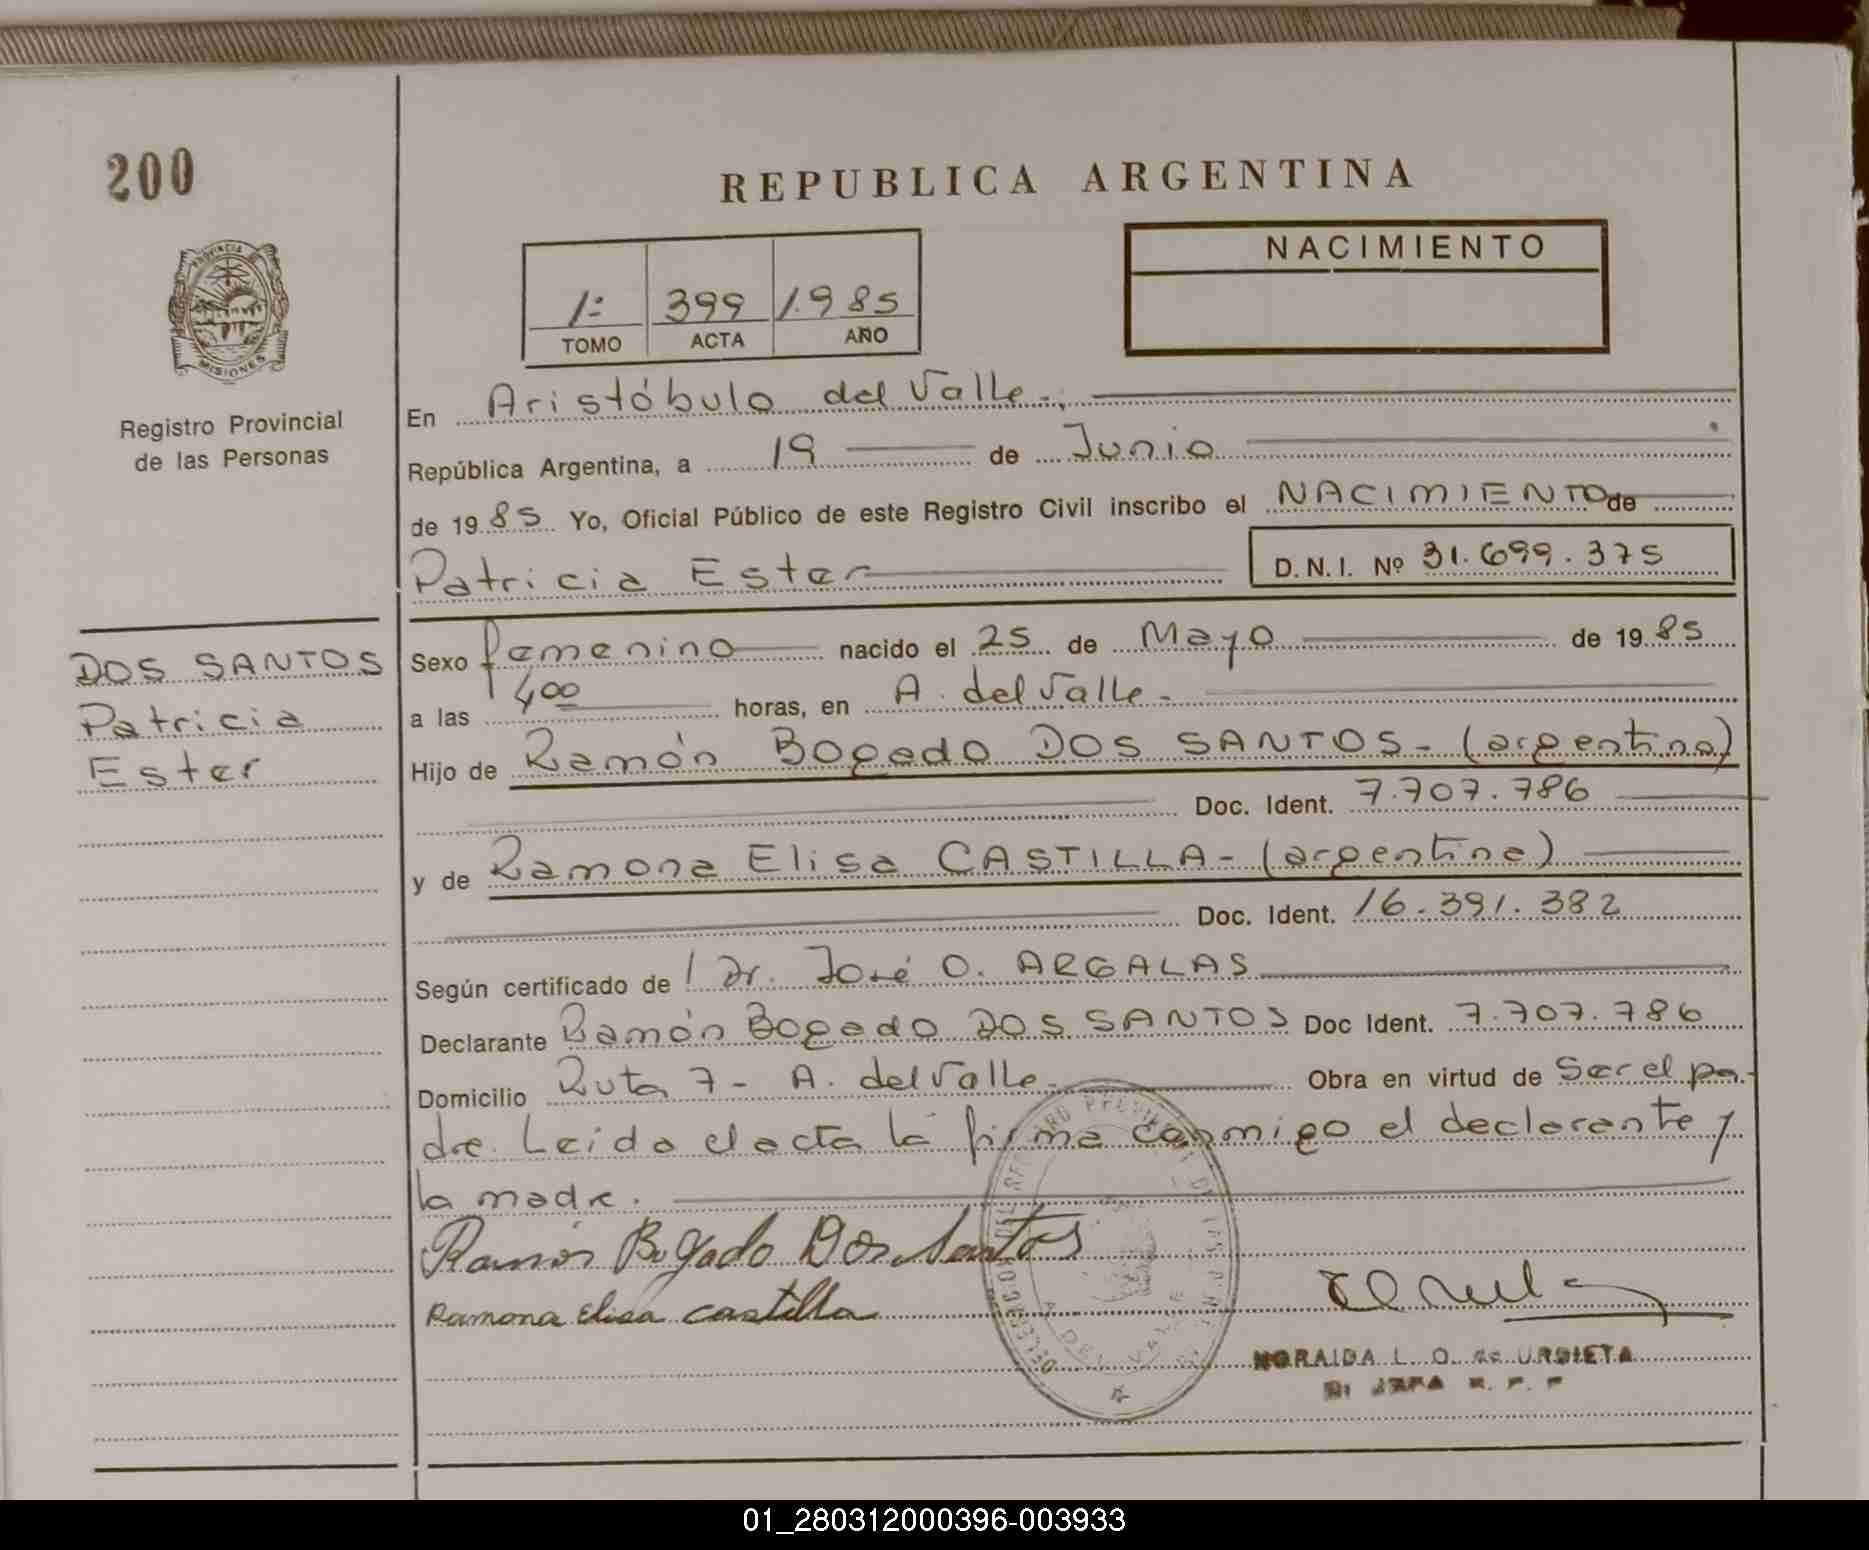 200
REPUBLICA ARGENTINA
PROVINCIA DE
MISIONES
Registro Provincial
de las Personas
1º 399 1.985
TOMO ACTA AÑO
NACIMIENTO
En Aristóbulo del Valle.-,
República Argentina, a 19 de Junio
de 1985 Yo, Oficial Público de este Registro Civil inscribo el NACIMIENTO de
Patricia Ester D. N. I. Nº 31.699.375
DOS SANTOS
Patricia
Ester
Sexo femenino nacido el 25 de Mayo de 1985
a las 4⁰⁰ horas, en A. del Valle-
Hijo de Ramón Bogado DOS SANTOS- (argentino)
Doc. Ident. 7.707.786
y de Ramona Elisa CASTILLA- (argentina)
Doc. Ident. 16.391.382
Según certificado de Dr. José O. ARGALAS
Declarante Ramón Bogado DOS SANTOS Doc Ident. 7.707.786
Domicilio Ruta 7- A. del Valle- Obra en virtud de Ser el pa-
dre. Leida el acta la firma conmigo el declarante y
la madre.
Ramón Bogado Dos Santos
Ramona Elisa Castilla
A. DEL VALLE
NORAIDA L. O. de URBIETA
01_280312000396-003933